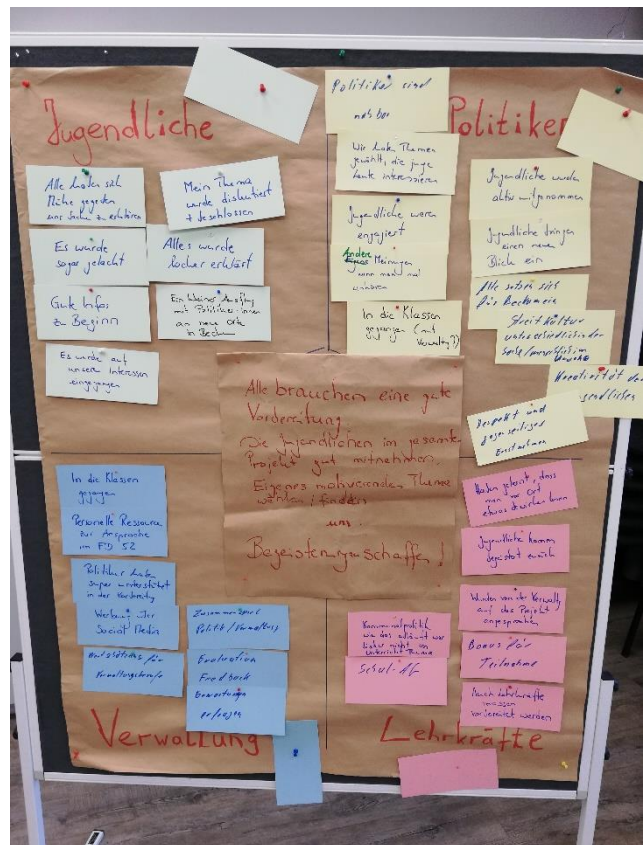 Jugendliche
Alle haben sich
Mühe gegeben
uns Sache zu erklären
Mein Thema
wurde diskutiert
+ beschlossen
Es wurde
sogar gelacht
Alles wurde
locker erklärt
Gute Infos
zu Beginn
Ein kleiner Ausflug
mit Politiker:innen
an neue Orte
in Beckum
Es wurde auf
unsere Interessen
eingegangen
Politiker
Politiker sind
nahbar
Wir haben Themen
gewählt, die junge
Leute interessieren
Jugendliche waren
engagiert
Andere
Meinungen
kann man
In die Klassen
gegangen (mit
Verwaltung?)
Jugendliche wurden
aktiv mitgenommen
Jugendliche bringen
einen neuen
Blick ein
Alle setzen sich
für Beckum ein
Streitkultur
unterschiedlich in der
Sache / menschlich im
Kreativität der
Jugendlichen
Respekt und
gegenseitiges
Ernstnehmen
Alle brauchen eine gute
Vorbereitung.
Die Jugendlichen im gesamten
Projekt gut mitnehmen.
Eigenes motivierendes Thema
wählen / finden
um
Begeisterung schaffen!
In die Klassen
gegangen
Personelle Ressource
zur Ansprache
im FD 52
Politiker haben
super unterstützt
in der Vorbereitung
Werbung über
Social Media
für
Verwaltungsberufe
Zusammenspiel
Politik / Verwaltung
Evaluation
Feedback
Bewertungen
Verwaltung
Haben gelernt, dass
man vor Ort
etwas bewirken kann
Jugendliche kamen
begeistert zurück
Wurden von der Verwaltung
auf das Projekt
angesprochen
Kommunalpolitik
wie das abläuft war
bisher nicht im
Unterricht Thema
Schul-AG
Bonus für
Teilnahme
Auch Lehrkräfte
müssen
vorbereitet werden
Lehrkräfte